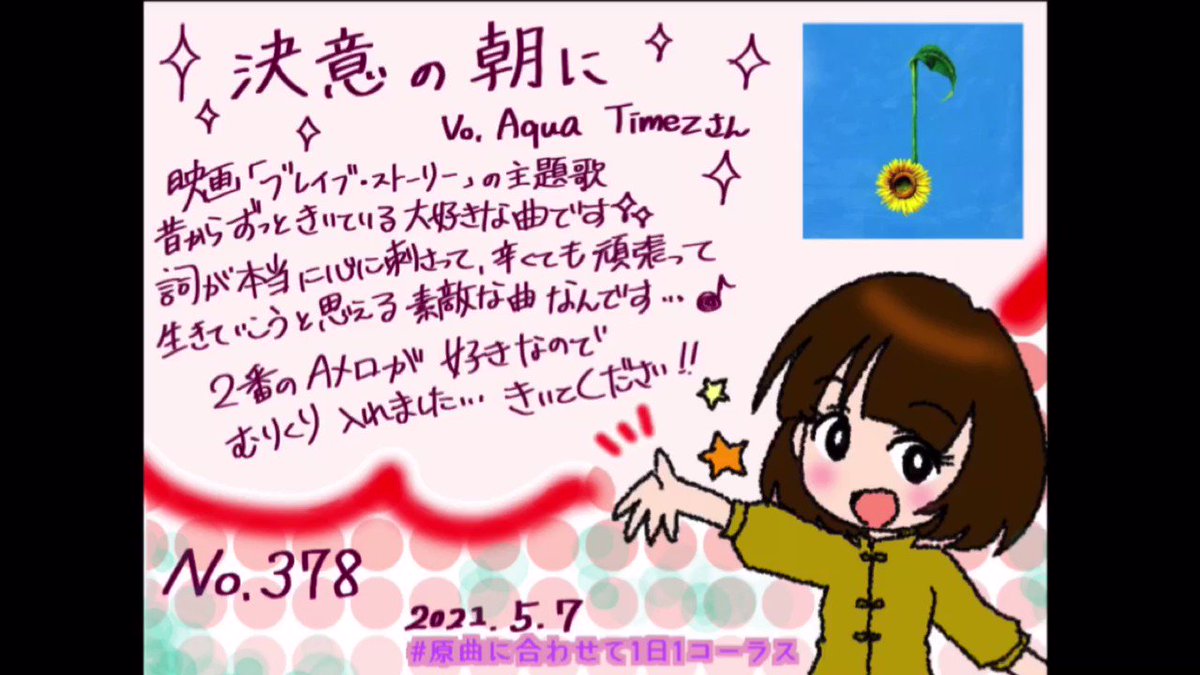 決意の朝に
Vo. Aqua Timezさん
映画「ブレイブ・ストーリー」の主題歌
昔からずっときいている大好きな曲です
詞が本当に心に刺さって、辛くても頑張って
生きていこうと思える素敵な曲なんです…♪
2番のAメロが好きなので
むりくり入れました… きいてください!!
No.378
2021.5.7
#原曲に合わせて1日1コーラス